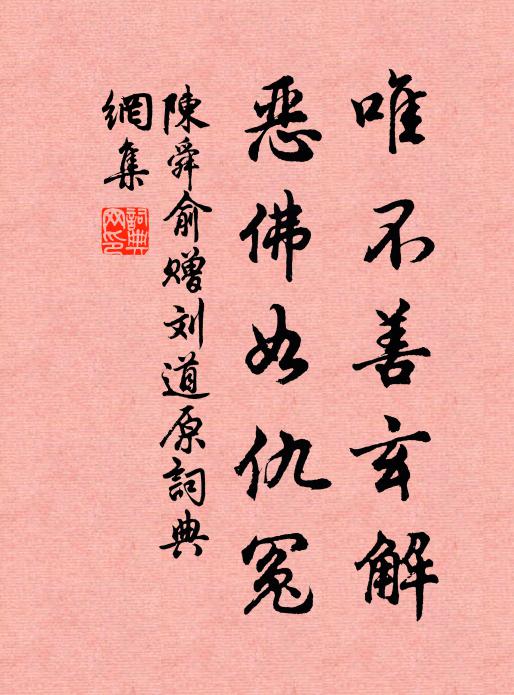 唯不善玄解
惡佛如仇冤
陳舜俞贈刘道原詞典
網集
詞典網印